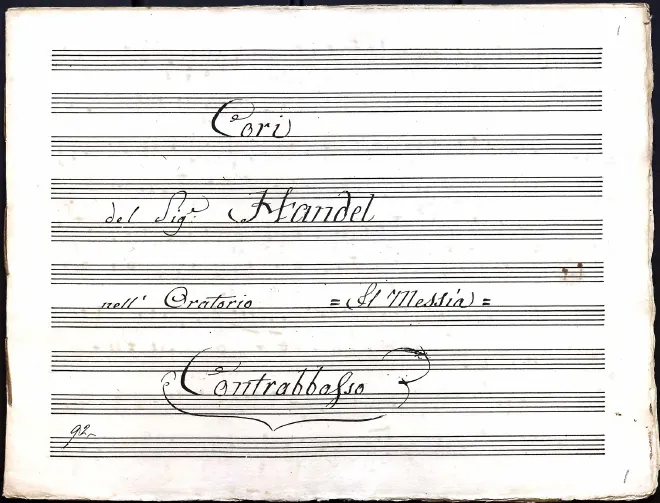 1
Cori
del Sig.re Handel
nell' Oratorio = Il Messia =
Contrabbasso
92
1